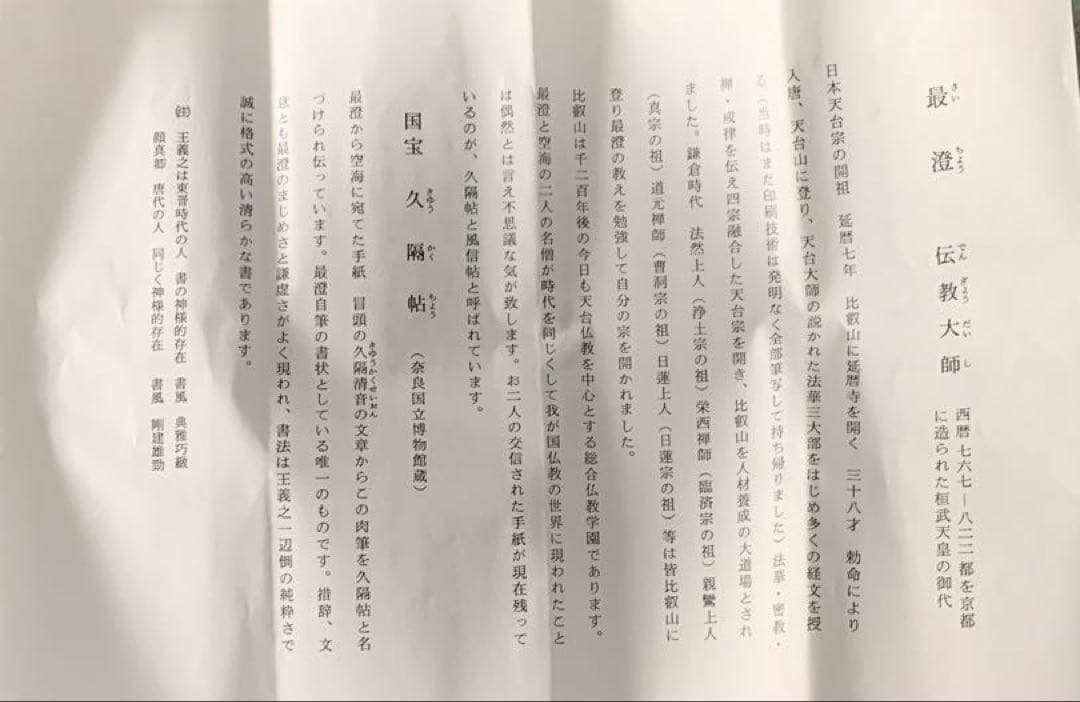 最澄 伝教大師 西暦七六七－八二二都を京都
に造られた桓武天皇の御代
日本天台宗の開祖 延暦七年 比叡山に延暦寺を開く 三十八才 勅命により
入唐、天台山に登り、天台大師の説かれた法華三大部をはじめ多くの経文を授
る（当時はまだ印刷技術は発明なく全部筆写して持ち帰りました）法華・密教・
禅・戒律を伝え四宗融合した天台宗を開き、比叡山を人材養成の大道場とされ
ました。鎌倉時代 法然上人（浄土宗の祖）栄西禅師（臨済宗の祖）親鸞上人
（真宗の祖）道元禅師（曹洞宗の祖）日蓮上人（日蓮宗の祖）等は皆比叡山に
登り最澄の教えを勉強して自分の宗を開かれました。
比叡山は千二百年後の今日も天台仏教を中心とする総合仏教学園であります。
最澄と空海の二人の名僧が時代を同じくして我が国仏教の世界に現われたこと
は偶然とは言え不思議な気が致します。お二人の交信された手紙が現在残って
いるのが、久隔帖と風信帖と呼ばれています。
国宝 久隔帖 （奈良国立博物館蔵）
最澄から空海に宛てた手紙 冒頭の久隔清音の文章からこの肉筆を久隔帖と名
づけられ伝っています。最澄自筆の書状としている唯一のものです。措辞、文
意とも最澄のまじめさと謙虚さがよく現われ、書法は王義之一辺倒の純粋さで
誠に格式の高い清らかな書であります。
㊟ 王義之は東晋時代の人 書の神様的存在 書風 典雅巧緻
顔真卿 唐代の人 同じく神様的存在 書風 剛建雄勁